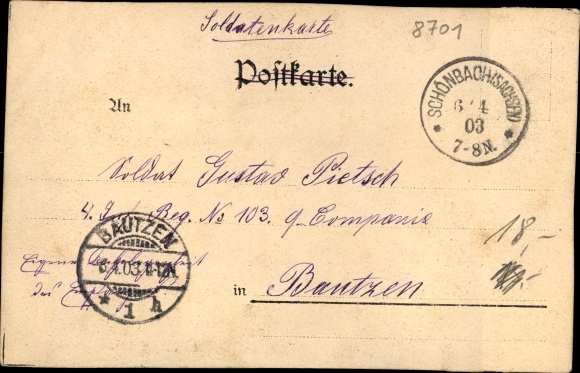 Soldatenkarte
8701
Postkarte.
An
SCHÖNBACH (SACHSEN)
6 4
03
7-8N.
Soldat Gustav Pietsch
4. I. Reg. No 103. 9. Companie
BAUTZEN
6.4.03. 11-12N.
* 1 h
Eigene Angelegenheit
des Empfängers
18,-
in Bautzen